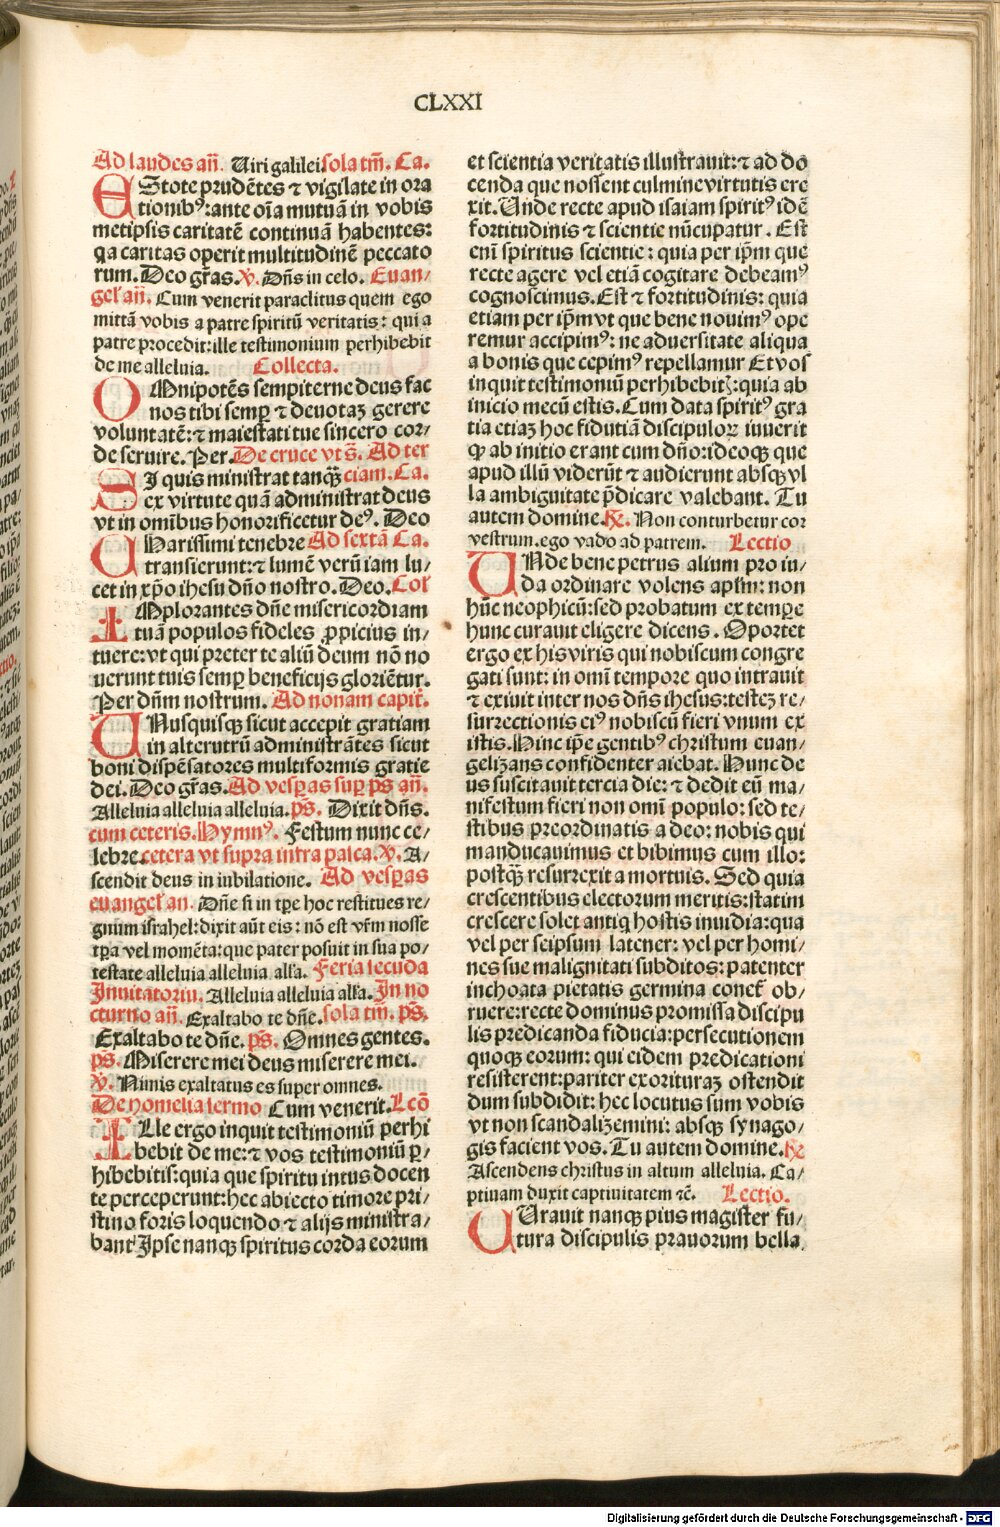 CLXXI
Ad laudes añ. Uiri galilei sola tm̄. Ca.
EStote prudētes ⁊ vigilate in ora
tionibꝰ: ante oīa mutuā in vobis
metipsis caritatē continuā habentes:
qa caritas operit multitudinē peccato
rum. Deo gr̄as. ꝟ. Dn̄s in celo. Euan/
gel' añ. Cum venerit paraclitus quem ego
mittā vobis a patre spiritū veritatis: qui a
patre procedit: ille testimonium perhibebit
de me alleluia. Collecta.
OMnipotēs sempiterne deus fac
nos tibi semꝑ ⁊ deuotaꝫ gerere
voluntatē: ⁊ maiestati tue sincero cor/
de seruire. Per. De cruce vt s̄. Ad ter
SI quis ministrat tanqꝫ ciam. Ca.
ex virtute quā administrat deus
vt in omībus honorificetur deꝰ. Deo
CHarissimi tenebre Ad sextā Ca.
transierunt: ⁊ lumē verū iam lu/
cet in xp̄o ihesu dn̄o nostro. Deo. Col'
IMplorantes dn̄e misericordiam
tuā populos fideles ꝓpicius in/
tuere: vt qui preter te aliū deum nō no
uerunt tuis semꝑ beneficijs gloriētur.
Per dn̄m nostrum. Ad nonam capit'.
UNusquisqꝫ sicut accepit gratiam
in alterutrū administrātes sicut
boni dispēsatores multiformis gratie
dei. Deo gr̄as. Ad vesꝑas suꝑ ps̄ añ.
Alleluia alleluia alleluia. ps̄. Dixit dn̄s.
cum ceteris. Hymnꝰ. Festum nunc ce/
lebre. cetera vt supra infra palca. ꝟ. A/
scendit deus in iubilatione. Ad vesꝑas
euangel' an. Dn̄e si in tꝑe hoc restitues re/
gnum israhel: dixit aūt eis: nō est vr̄m nosse
tꝑa vel momēta: que pater posuit in sua po/
testate alleluia alleluia alla. Feria secūda
Inuitatoriū. Alleluia alleluia alla. In no
cturno añ. Exaltabo te dn̄e. sola tm̄. ps̄.
Exaltabo te dn̄e. ps̄. Omnes gentes.
ps̄. Miserere mei deus miserere mei.
ꝟ. Nimis exaltatus es super omnes.
De homelia sermo Cum venerit. Lcō
ILle ergo inquit testimoniū perhi
bebit de me: ⁊ vos testimoniū ꝑ/
hibebitis: quia que spiritu intus docen
te perceperunt: hec abiecto timore pri/
stino foris loquendo ⁊ alijs ministra/
bant Ipse nanqꝫ spiritus corda eorum
et scientia veritatis illustrauit: ⁊ ad do
cenda que nossent culmine virtutis ere
xit. Unde recte apud isaiam spiritꝰ idē
fortitudinis ⁊ scientie nūcupatur. Est
eni spiritus scientie: quia per ip̄m que
recte agere vel etiā cogitare debeamꝰ
cognoscimus. Est ⁊ fortitudinis: quia
etiam per ip̄m vt que bene nouimꝰ ope
remur accipimꝰ: ne aduersitate aliqua
a bonis que cepimꝰ repellamur Et vos
inquit testimoniū perhibebitꝭ: quia ab
inicio mecū estis. Cum data spiritꝰ gra
tia etiaꝫ hoc fidutiā discipuloꝝ iuuerit
ꝙ ab initio erant cum dn̄o: ideoqꝫ que
apud illū viderūt ⁊ audierunt absqꝫ vl
la ambiguitate p̄dicare valebant. Tu
autem domine. ℟. Non conturbetur cor
vestrum. ego vado ad patrem. Lectio
UNde bene petrus alium pro iu/
da ordinare volens apl̄m: non
hūc neophicū: sed probatum ex tempe
hunc curauit eligere dicens. Oportet
ergo ex his viris qui nobiscum congre
gati sunt: in omī tempore quo intrauit
⁊ exiuit inter nos dn̄s ihesus: testeꝫ re/
surrectionis eiꝰ nobiscū fieri vnum ex
istis. Hinc ip̄e gentibꝰ christum euan/
gelizans confidenter aiebat. Hunc de
us suscitauit tercia die: ⁊ dedit eū ma/
nifestum fieri non omī populo: sed te/
stibus preordinatis a deo: nobis qui
manducauimus et bibimus cum illo:
postqꝫ resurrexit a mortuis. Sed quia
crescentibus electorum meritis: statim
crescere solet antiq hostis inuidia: qua
vel per seipsum latener: vel per homi/
nes sue malignitati subditos: patenter
inchoata pietatis germina conet' ob/
ruere: recte dominus promissa discipu
lis predicanda fiducia: persecutionem
quoqꝫ eorum: qui eidem predicationi
resisterent: pariter exorituraꝫ ostendit
dum subdidit: hec locutus sum vobis
vt non scandalizemini: absqꝫ synago/
gis facient vos. Tu autem domine. ℟
Ascendens christus in altum alleluia. Ca/
ptiuam duxit captiuitatem ⁊c̄. Lectio.
CUrauit nanqꝫ pius magister fu/
tura discipulis prauorum bella
Digitalisierung gefördert durch die Deutsche Forschungsgemeinschaft - DFG